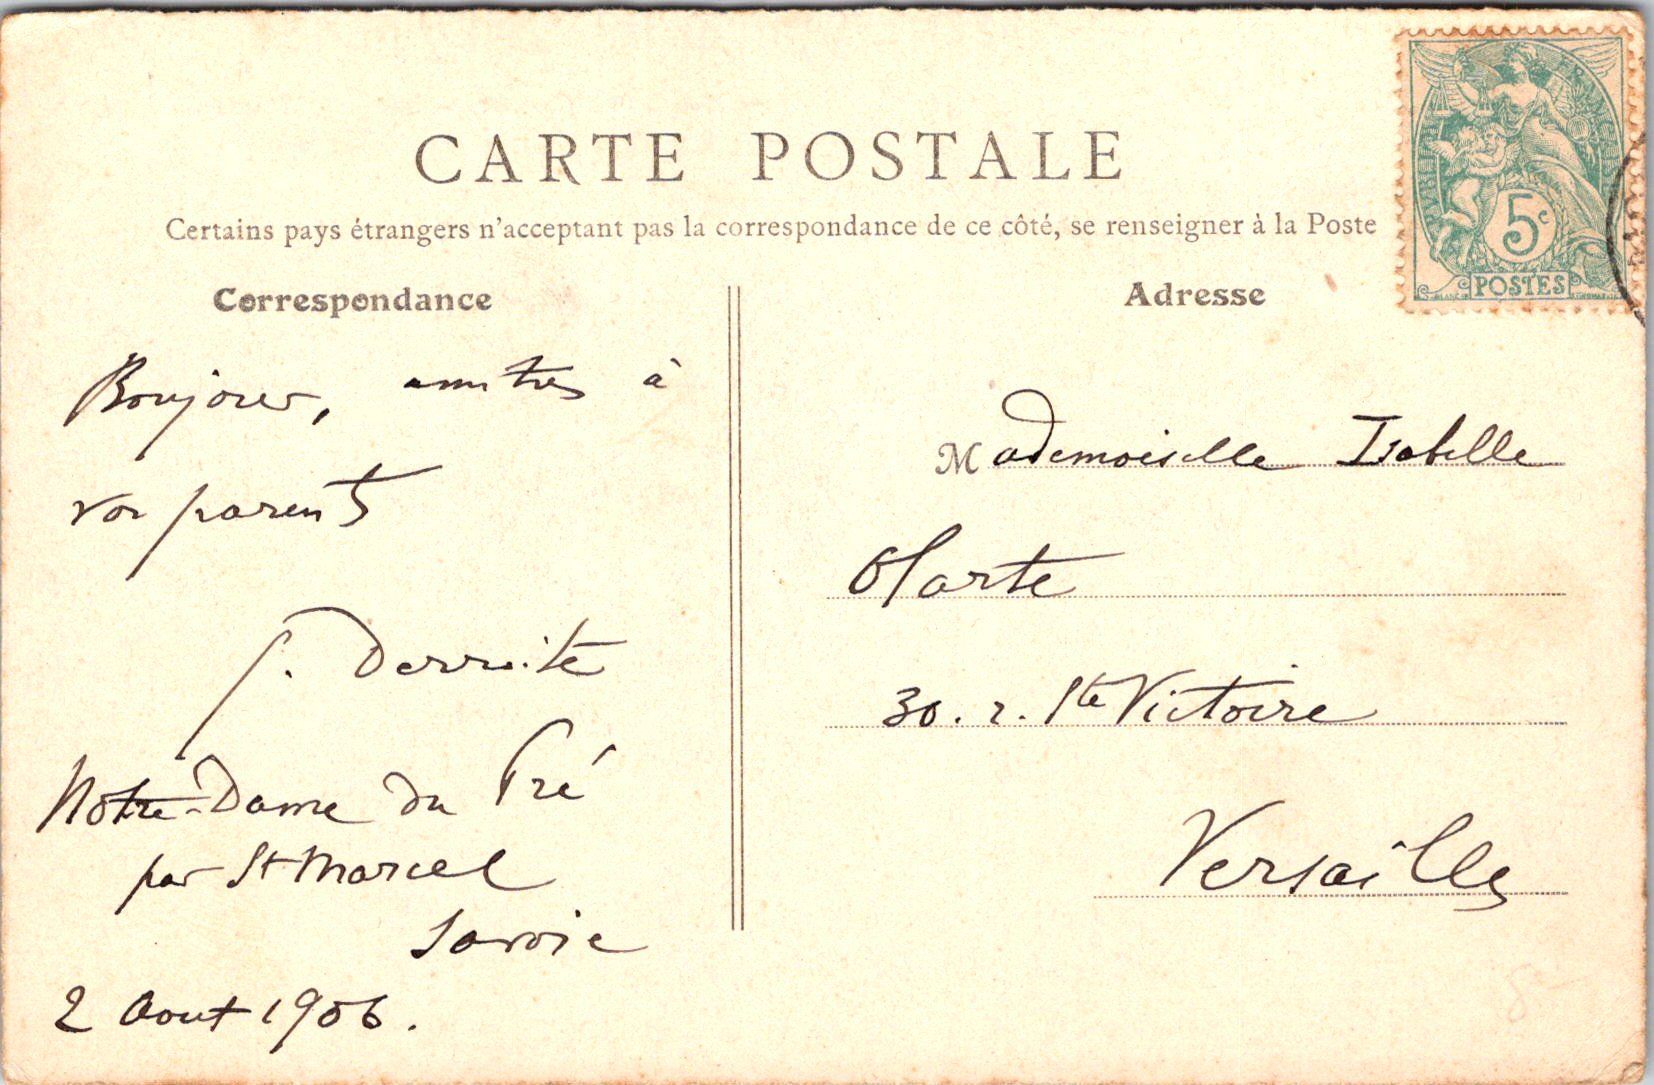 CARTE POSTALE
Certains pays étrangers n'acceptent pas la correspondance de ce côté, se renseigner à la Poste
Correspondance
Adresse
5c
POSTES
Bonjour, à
vos parents
Derroite
Notre-Dame du Pré
par St Marcel
Savoie
2 Aout 1906.
Mademoiselle Isabelle
Olarte
30. r. Ste Victoire
Versailles